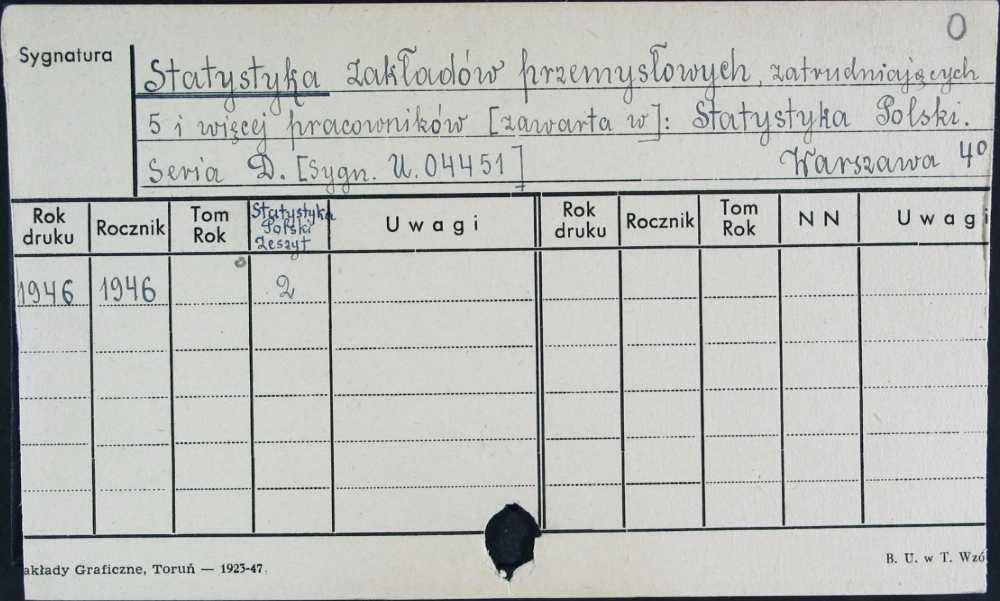 O
Sygnatura
Statystyka zakładów przemysłowych, zatrudniających
5 i więcej pracowników [zawarta w]: Statystyka Polski.
Seria D. [Sygn. U. 04451] Warszawa 4º
Rok druku Rocznik Tom Rok Statystyka Polski Zeszyt Uwagi Rok druku Rocznik Tom Rok NN Uwagi
1946 1946 2
akłady Graficzne, Toruń — 1923-47. B. U. w T. Wzó